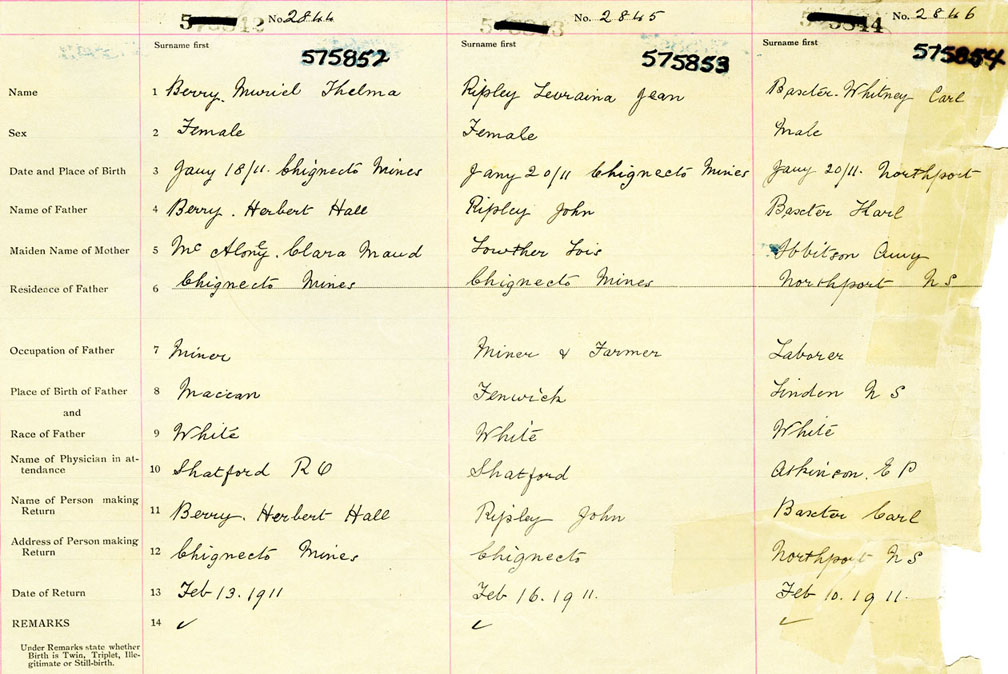 No. 2844 No. 2845 No. 2846
Surname first Surname first Surname first
575852 575853 575854
Name 1 Berry. Muriel Thelma Ripley Levraina Jean Baxter. Whitney Carl
Sex 2 Female Female Male
Date and Place of Birth 3 Jany 18/11. Chignecto Mines Jany 20/11 Chignecto Mines Jany 20/11. Northport
Name of Father 4 Berry. Herbert Hall Ripley John Baxter Karl
Maiden Name of Mother 5 Mc Aloney. Clara Maud Lowther Lois Ibbitson Amy
Residence of Father 6 Chignecto Mines Chignecto Mines Northport N S
Occupation of Father 7 Miner Miner & Farmer Laborer
Place of Birth of Father 8 Maccan Fenwick Linden N S
and
Race of Father 9 White White White
Name of Physician in at-
tendance 10 Shatford R O Shatford Atkinson. E P
Name of Person making
Return 11 Berry. Herbert Hall Ripley John Baxter Carl
Address of Person making
Return 12 Chignecto Mines Chignecto Northport N S
Date of Return 13 Feb 13. 1911 Feb 16. 1911. Feb 10. 1911.
REMARKS 14 ✓ ✓ ✓
Under Remarks state whether
Birth is Twin, Triplet, Ille-
gitimate or Still-birth.